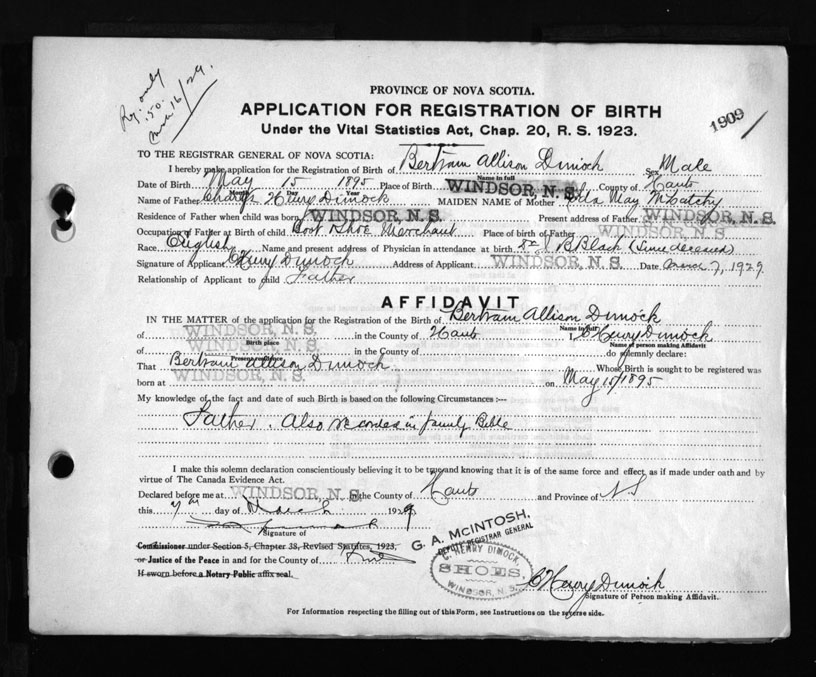 Reg. only
.50.
Mar 16/29.
PROVINCE OF NOVA SCOTIA.
APPLICATION FOR REGISTRATION OF BIRTH
Under the Vital Statistics Act, Chap. 20, R. S. 1923.
1909
TO THE REGISTRAR GENERAL OF NOVA SCOTIA:
I hereby make application for the Registration of Birth of Bertram Allison Dimock Sex Male
Name in full
Date of Birth May 15 1895 Place of Birth WINDSOR, N. S. County of Hants
Month Day Year
Name of Father Henry Dimock MAIDEN NAME of Mother May
Residence of Father when child was born WINDSOR, N. S. Present address of Father WINDSOR, N. S.
Occupation of Father at Birth of child Boot & Shoe Merchant Place of birth of Father WINDSOR, N. S.
Race English Name and present address of Physician in attendance at birth Black (Since deceased)
Signature of Applicant C Henry Dimock Address of Applicant WINDSOR, N. S. Date March 7, 1929
Relationship of Applicant to child Father
AFFIDAVIT
IN THE MATTER of the application for the Registration of the Birth of Bertram Allison Dimock
Name in full
of WINDSOR, N. S. in the County of Hants I, C Henry Dimock
Birth place Name of person making Affidavit
of WINDSOR, N. S. in the County of do solemnly declare:
Present residence
That Bertram Allison Dimock Whose Birth is sought to be registered was
born at WINDSOR, N. S. on May 15/1895
My knowledge of the fact and date of such Birth is based on the following Circumstances :—
Father. Also recorded in family Bible
I make this solemn declaration conscientiously believing it to be true and knowing that it is of the same force and effect as if made under oath and by
virtue of The Canada Evidence Act.
Declared before me at WINDSOR, N. S. in the County of Hants and Province of N S
this 7th day of March 1929
Signature of
Commissioner under Section 5, Chapter 38, Revised Statutes, 1923,
or Justice of the Peace in and for the County of
If sworn before a Notary Public affix seal.
G. A. McINTOSH,
DEPUTY REGISTRAR GENERAL
C. HENRY DIMOCK,
SHOES
WINDSOR, N. S.
C Henry Dimock
Signature of Person making Affidavit.
For Information respecting the filling out of this Form, see Instructions on the reverse side.